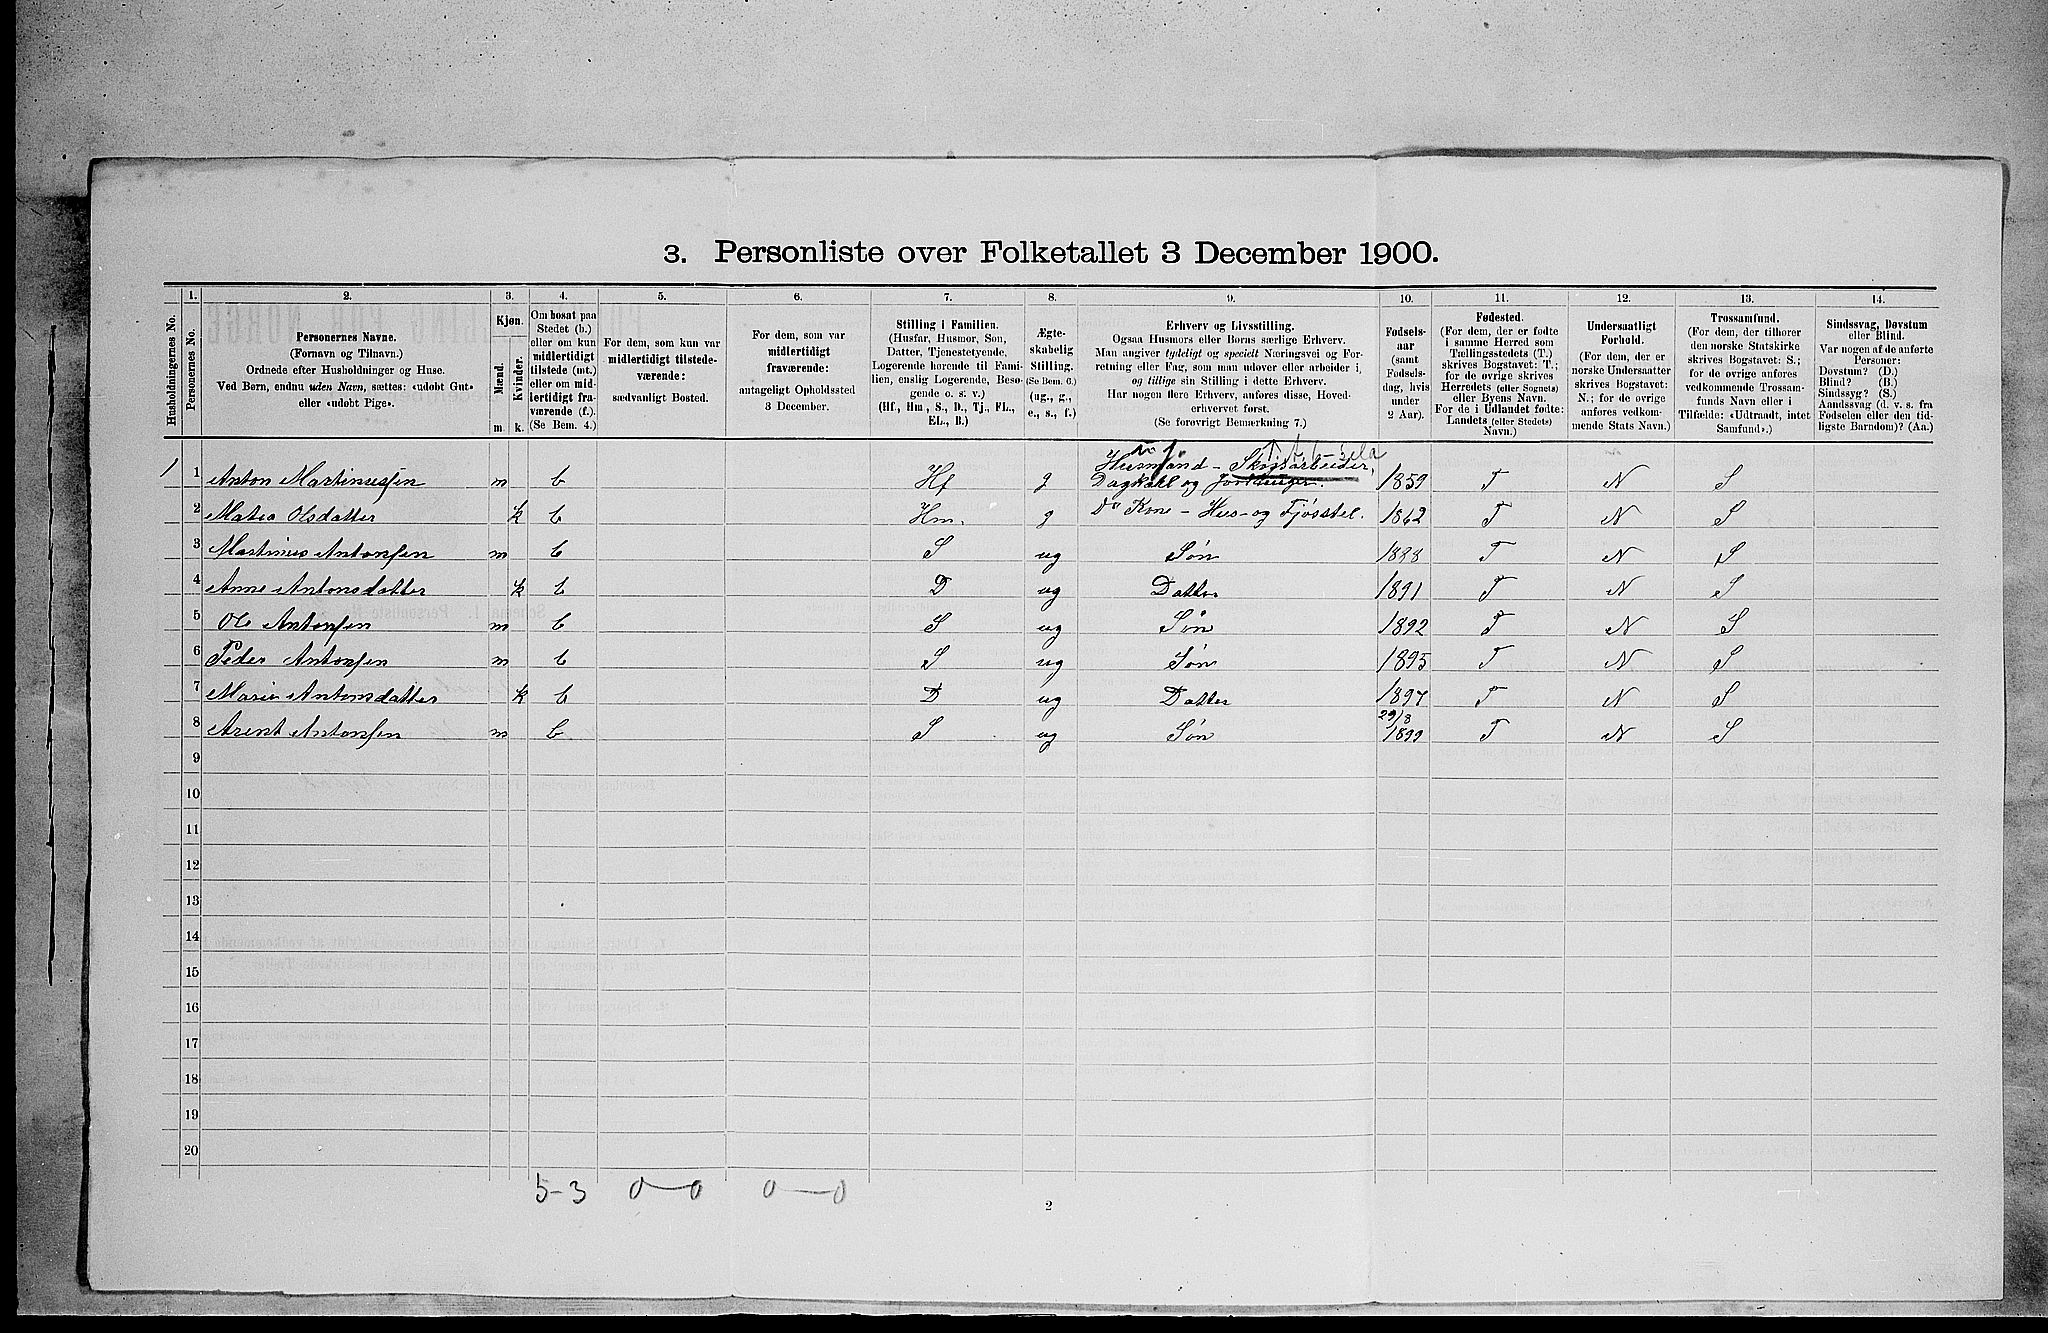 3. Personliste over Folketallet 3 December 1900.
Husholdningernes No.
1.
Personernes No.
2.
Personernes Navne.
(Fornavn og Tilnavn.)
Ordnede efter Husholdninger og Huse.
Ved Børn, endnu uden Navn, sættes: «udøbt Gut»
eller «udøbt Pige».
3.
Kjøn.
Mænd.
Kvinder.
m.
k.
4.
Om bosat paa
Stedet (b.)
eller om kun
midlertidigt
tilstede (mt.)
eller om mid-
lertidigt fra-
værende (f.).
(Se Bem. 4.)
5.
For dem, som kun var
midlertidigt tilstede-
værende:
sædvanligt Bosted.
6.
For dem, som var
midlertidigt
fraværende:
antageligt Opholdssted
3 December.
7.
Stilling i Familien.
(Husfar, Husmor, Søn,
Datter, Tjenestetyende,
Logerende hørende til Fami-
lien, enslig Logerende, Besø-
gende o. s. v.)
(Hf., Hm., S., D., Tj., FL.,
EL., B.)
8.
Ægte-
skabelig
Stilling.
(Se Bem. 6.)
(ug., g.,
e., s., f.)
9.
Erhverv og Livsstilling.
Ogsaa Husmors eller Børns særlige Erhverv.
Man angiver tydeligt og specielt Næringsvei og For-
retning eller Fag, som man udøver eller arbeider i,
og tillige sin Stilling i dette Erhverv.
Har nogen flere Erhverv, anføres disse, Hoved-
erhvervet først.
(Se forøvrigt Bemerkning 7.)
10.
Fødsels-
aar
(samt
Fødsels-
dag, hvis
under
2 Aar).
11.
Fødested.
(For dem, der er fødte
i samme Herred som
Tællingsstedets (T.)
skrives Bogstavet: T.;
for de øvrige skrives
Herredets (eller Sognets)
eller Byens Navn.
For de i Udlandet fødte:
Landets (eller Stedets)
Navn.)
12.
Undersaatligt
Forhold.
(For dem, der er
norske Undersaatter
skrives Bogstavet:
N.; for de øvrige
anføres vedkom-
mende Stats Navn.)
13.
Trossamfund.
(For dem, der tilhører
den norske Statskirke
skrives Bogstavet: S.;
for de øvrige anføres
vedkommende Trossam-
funds Navn eller i
Tilfælde: «Udtraadt, intet
Samfund».)
14.
Sindssvag, Døvstum
eller Blind.
Var nogen af de anførte
Personer:
Døvstum? (D.)
Blind? (B.)
Sindssyg? (S.)
Aandssvag (d. v. s. fra
Fødselen eller den tid-
ligste Barndom)? (Aa.)
1 1 Anton Martinussen m b Hf g Husmand - Skogsarbeider, Dagkarl og 1859 T N S
2 Matea Olsdatter k b Hm. g Do Kone - Hus- og Fjøsstel. 1862 T N S
3 Martinus Antonsen m b S ug Søn 1888 T N S
4 Anne Antonsdatter k b D ug Datter 1891 T N S
5 Ole Antonsen m b S ug Søn 1892 T N S
6 Peder Antonsen m b S ug Søn 1895 T N S
7 Marie Antonsdatter k b D ug Datter 1897 T N S
8 Arent Antonsen m b. S ug Søn 29/8 1899 T N S
9
10
11
12
13
14
15
16
17
18
19
20
5-3 0-0 0-0
2